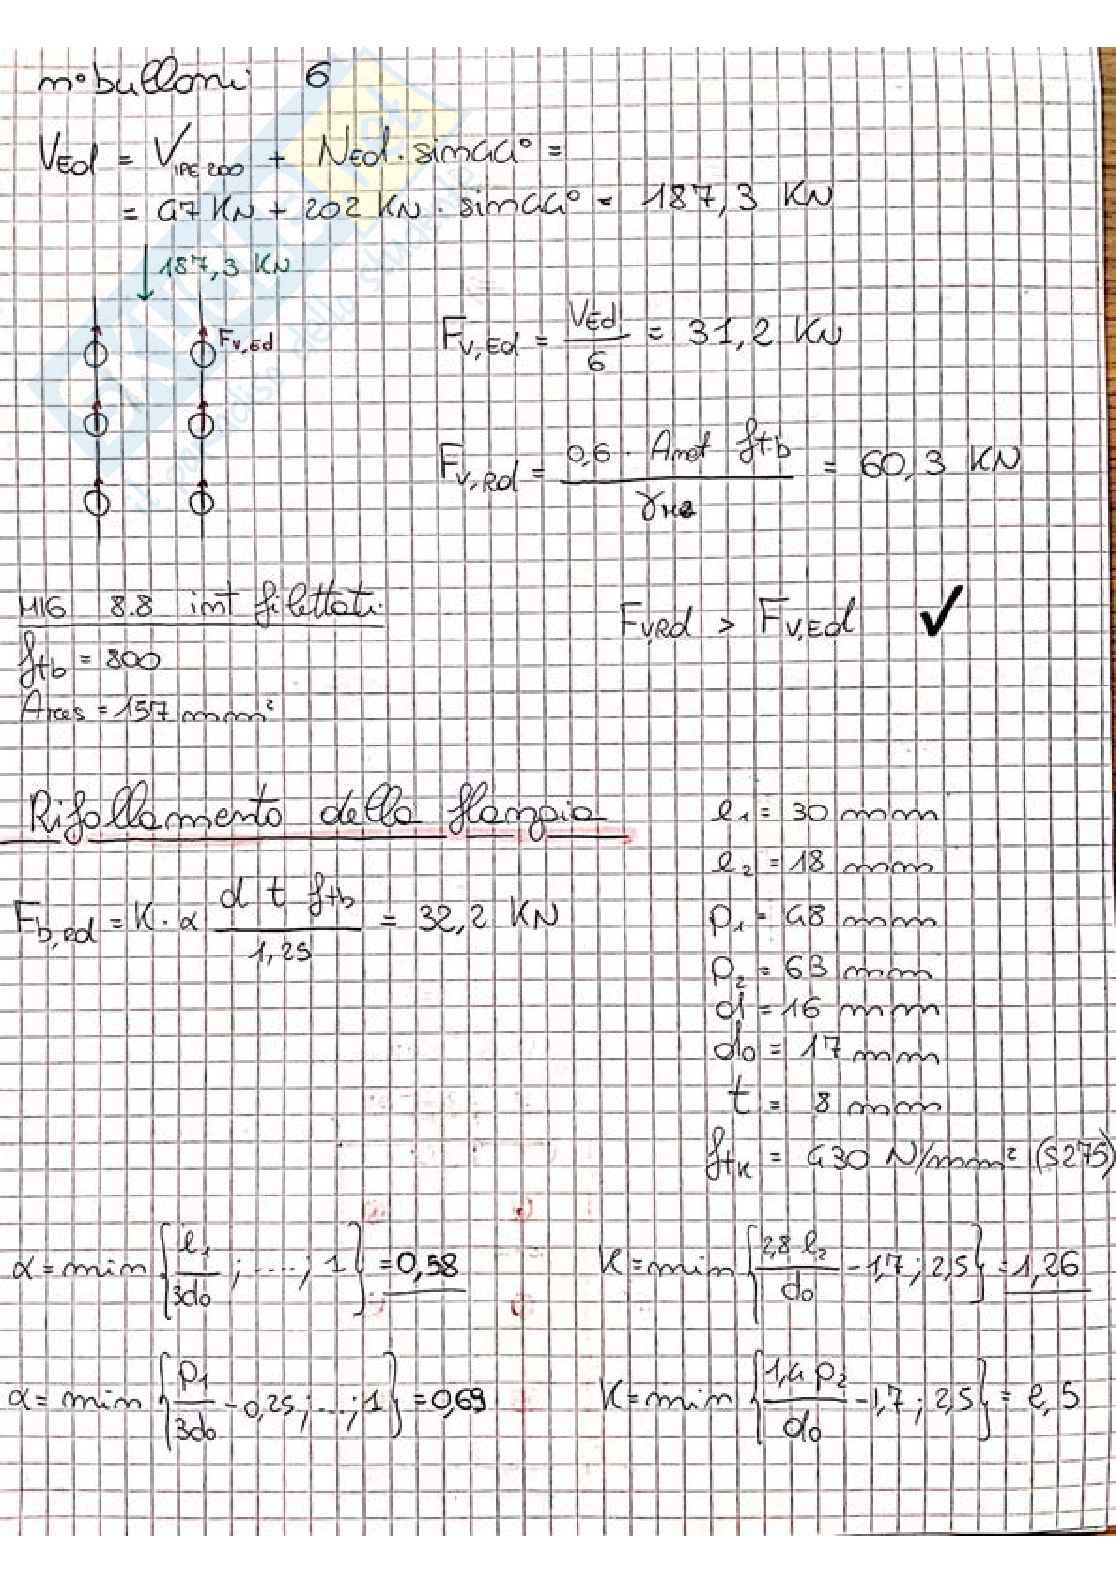 n° bulloni 6
VEd = VIPE 200 + NEd · sin44° =
= 47 KN + 202 KN · sin44° = 187,3 KN
187,3 KN
Fv,Ed
Fv,Ed = VEd / 6 = 31,2 KN
Fv,Rd = 0,6 · Anet ftb / γM2 = 60,3 KN
M16 8.8 int filettati
ftb = 800
Ares = 157 mm²
Fv,Rd > Fv,Ed ✓
Rifollamento della flangia
Fb,ed = K · α d t ftb / 1,25 = 32,2 KN
e1 = 30 mm
e2 = 18 mm
p1 = 48 mm
p2 = 63 mm
d = 16 mm
d0 = 17 mm
t = 8 mm
ftk = 430 N/mm² (S275)
α = min { e1 / 3d0 ; ....; 1 } = 0,58
K = min { 2,8 e2 / d0 - 1,7 ; 2,5 } = 1,26
α = min { p1 / 3d0 - 0,25 ; ...; 1 } = 0,69
K = min { 1,4 p2 / d0 - 1,7 ; 2,5 } = 2,5